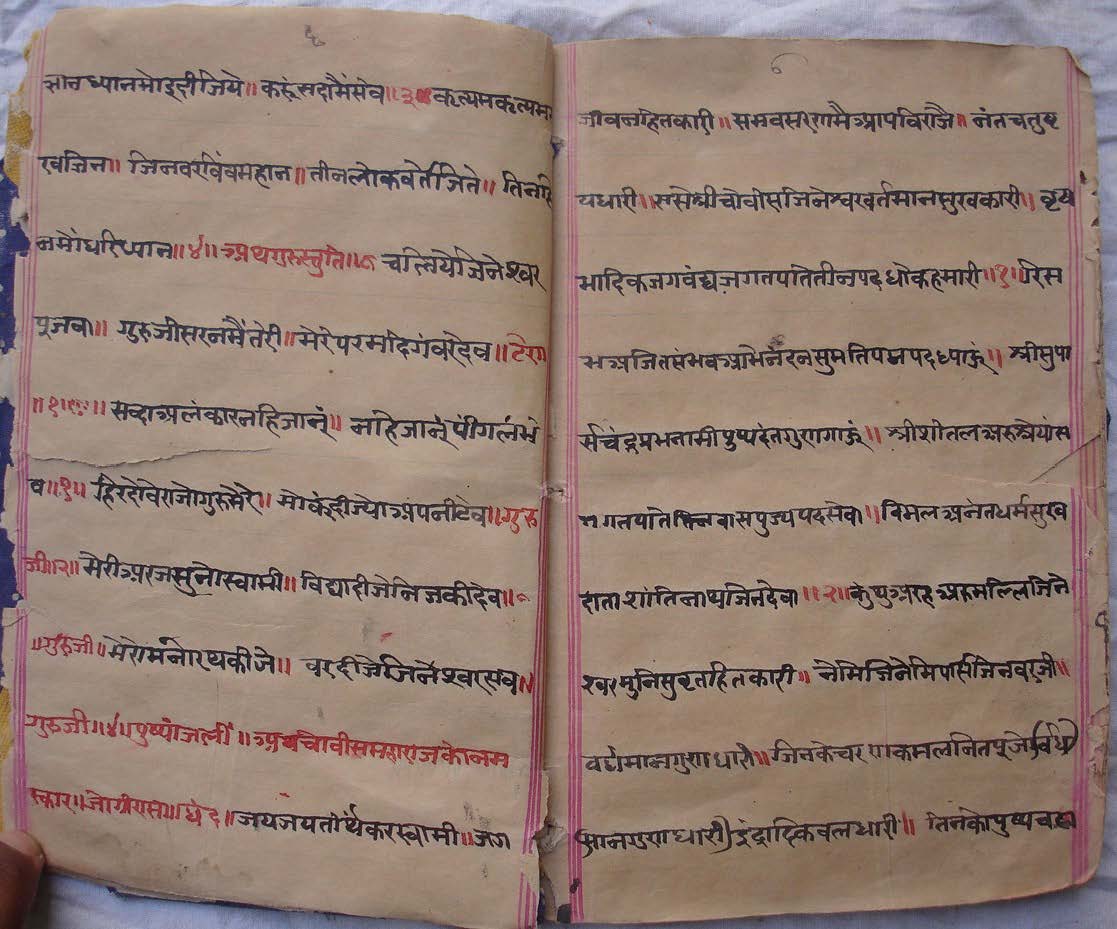 ६
ज्ञान ध्यानमोइ दीजिये॥ करुंसदामैंसेव॥३॥ कृत्यमकृत्यम
खजिन॥ जिनवरविंवमहान॥ तीनलोकवर्तेजिते॥ तिनहि
नमोंधरिध्यान॥४॥ अथगुरुस्तुति॥ चलियेजिनेश्वर
पूजवा॥ गुरुजीसरनमैंतेरी॥ मेरेपरमदिगंवरदेव॥ टेर॥
॥१॥ सव्दाअलंकारनहिजानूं॥ नहिजानूंपींगलभे
व॥१॥ हिरदेवेराजोगुरुमेरे॥ मोकूंदीज्योअपनीटेव॥ गुरु
जी॥२॥ मेरीअरजसुनोस्वामी॥ विद्यादीजेनिजकीदेव॥
॥गुरुजी॥ मेरोमनोरथकीजे॥ वरदीजेजिनेश्वरसेव॥
गुरुजी॥४॥ पुष्पांजलीं॥ अथचोवीसमहाराजकोनम
स्कार॥ जोगीरासा॥ छंद॥ जयजयतीर्थंकरस्वामी॥ जग
६
जीवनहितकारी॥ समवसरणमैआपविराजै॥ नंतचतुष्ट
यधारी॥ ऐसेश्रीचोवीसजिनेश्वरवर्तमानसुखकारी॥ वृष
भादिकजगवंद्यजगतपतितीनपदधोकहमारी॥१॥ रिस
भअजितसंभवअभिनंदनसुमतिपद्मपदध्याऊं॥ श्रीसुपा
र्सचंद्रप्रभनामीपुष्पदंतगुणगाऊं॥ श्रीशीतलअरुश्रेयांस
जगतपतिवासपुज्यपदसेवा॥ विमलअनंतधर्मसुख
दाताशांतिनाथजिनदेवा॥२॥ कुंथुअरहअरुमल्लिजिने
श्वरमुनिसुवृतहितकारी॥ नेमिजिनेमिपार्सजिनवरजी॥
वर्द्धमानगुणधारी॥ जिनकेचरणकमलनितपूजे
ज्ञानगुणधारी॥ इंद्रादिकवलधारी॥ तिनकोपुष्प